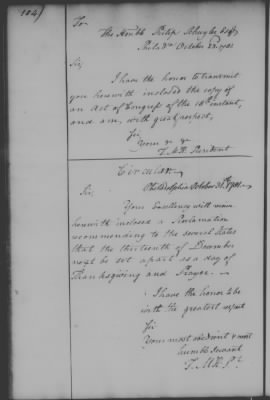 104)
To
The Honble Philip Schuyler Esqr
Philada October 23. 1781
Sir,
I have the honor to transmit
you herewith inclosed the copy of
an Act of Congress of the instant,
and am, with great respect,
Sir
Your &c &c
T. M:K. President
Circular
Philadelphia October 31st 1781.
Sir,
Your Excellency will receive
herewith inclosed a Proclamation
recommending to the several States
that the thirteenth of December
next be set apart as a day of
Thanksgiving and Prayer. —
I have the honor to be
with the greatest respect
Sir
Your most obedient & most
humble servant
T. M:K. Pt.